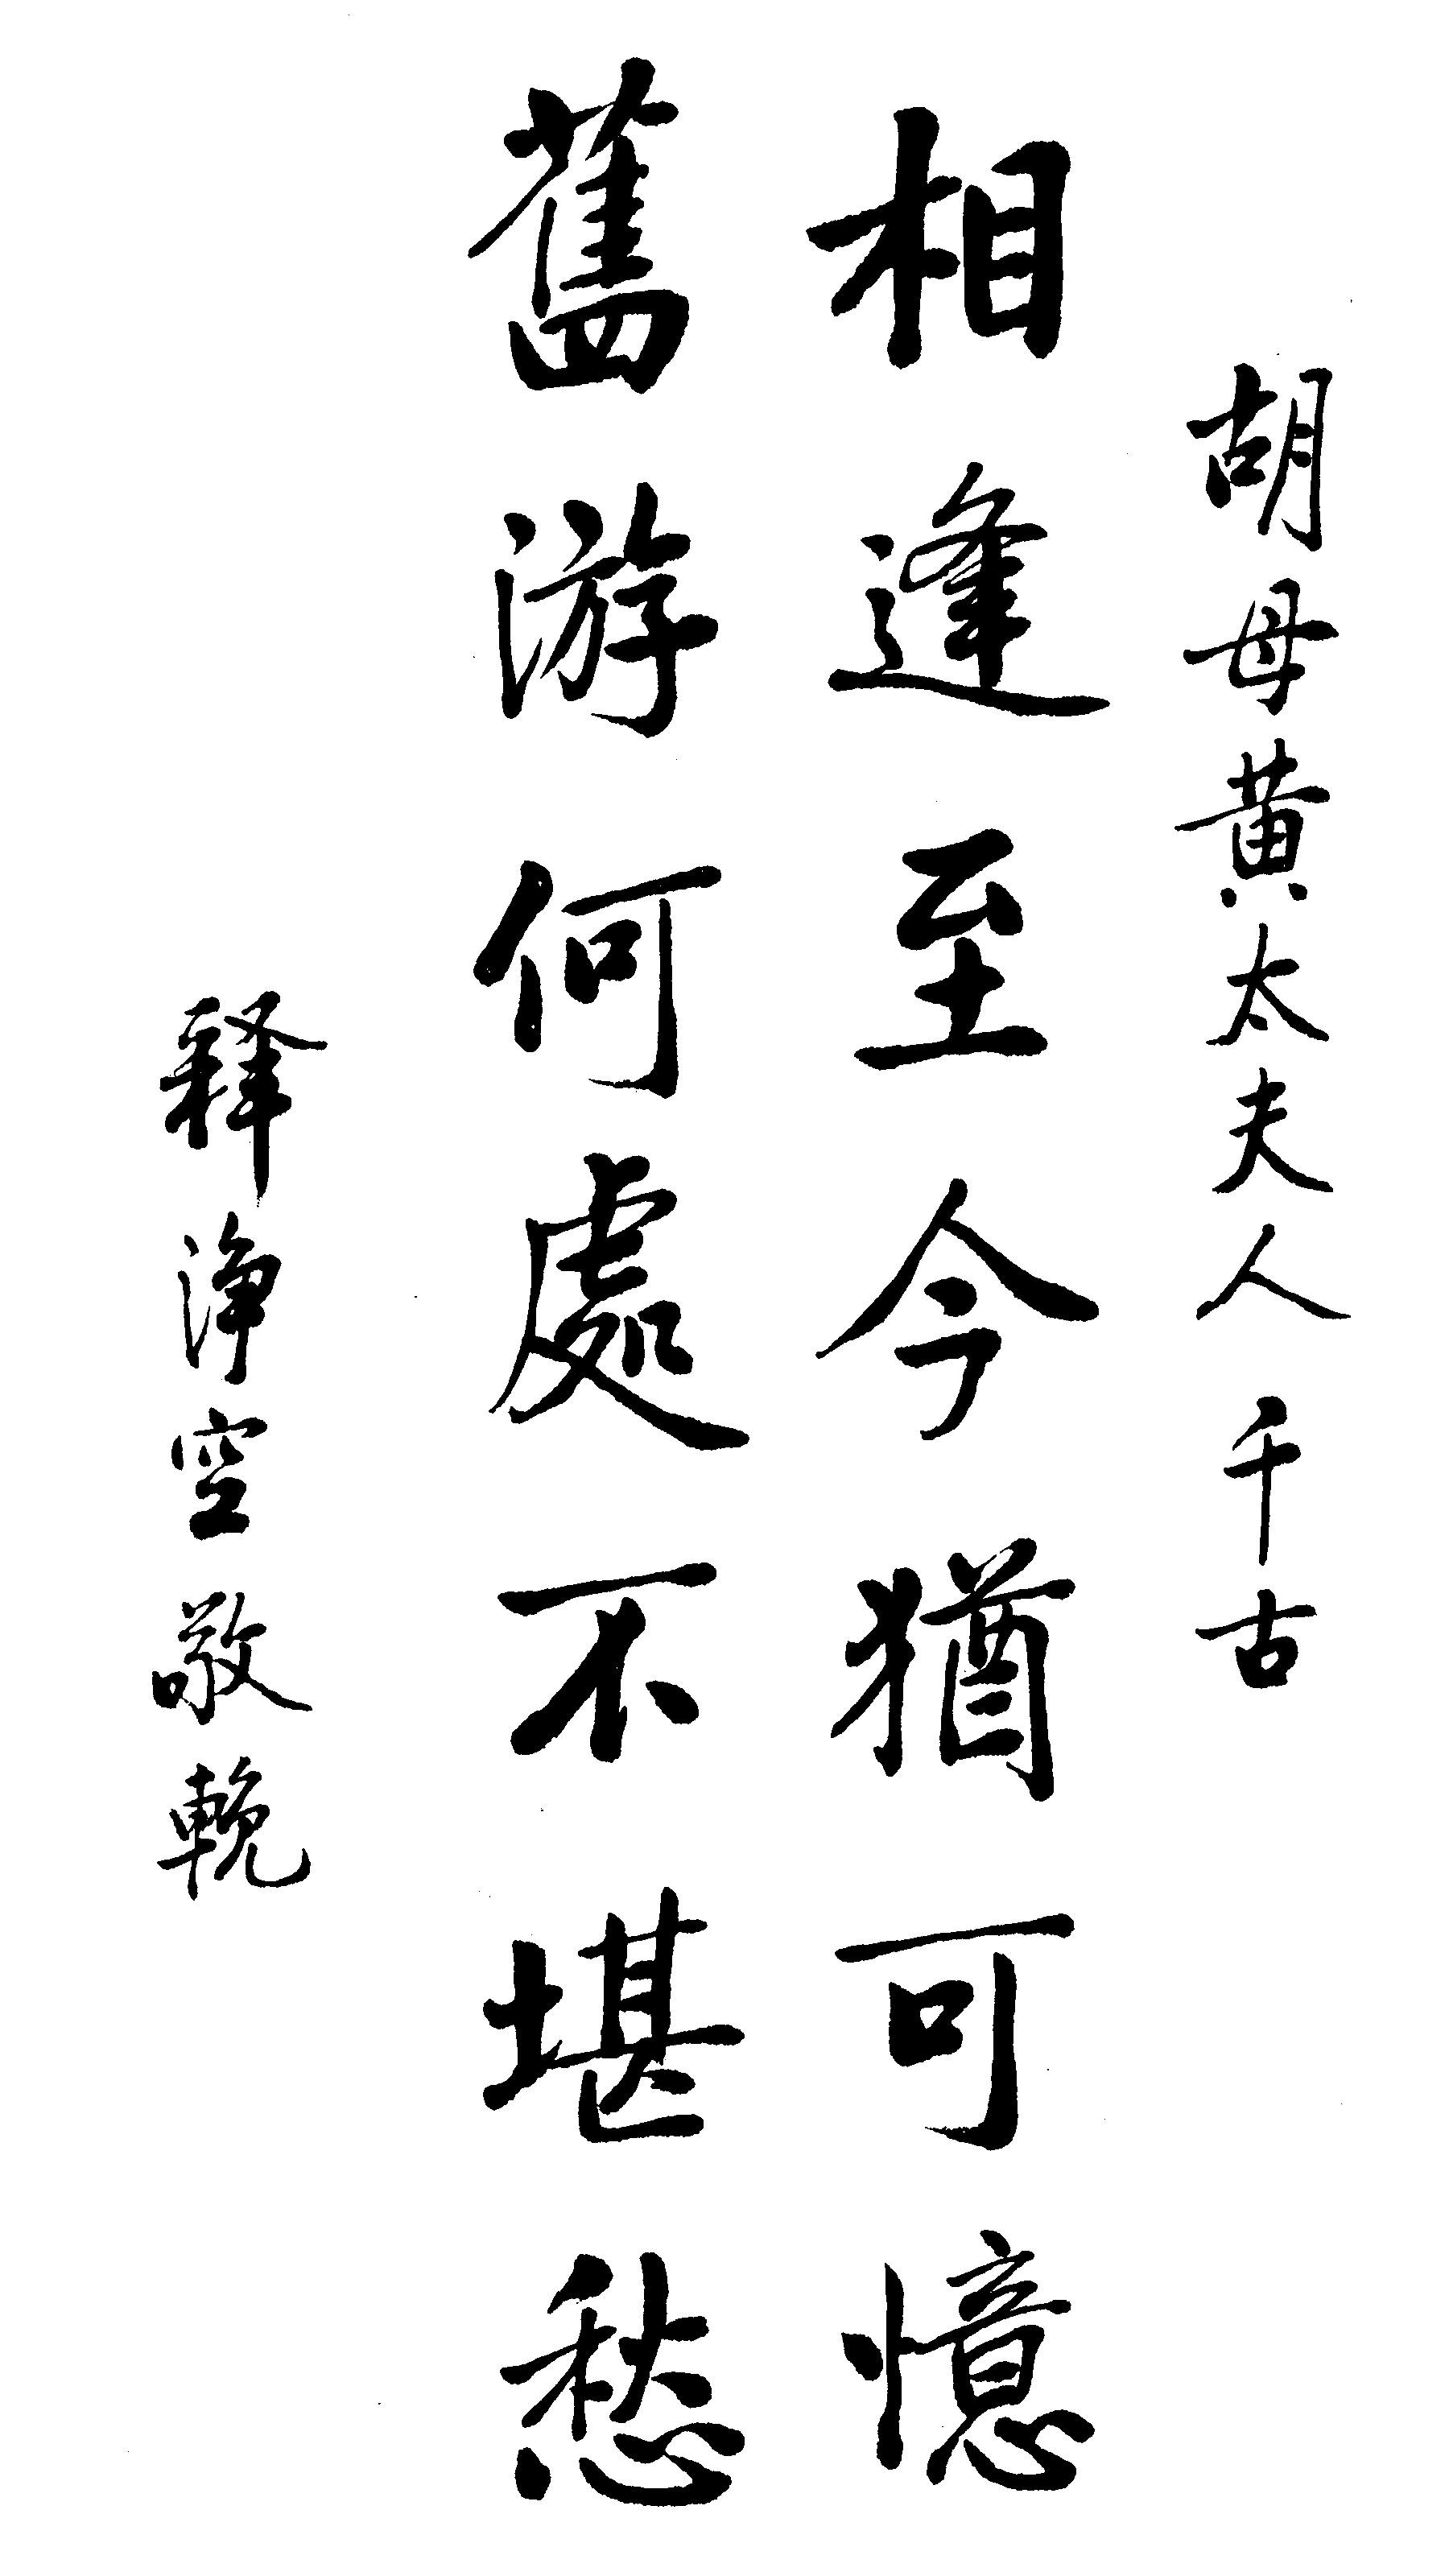 胡母黃太夫人 千古
相逢至今猶可憶
舊游何處不堪愁
释淨空敬輓